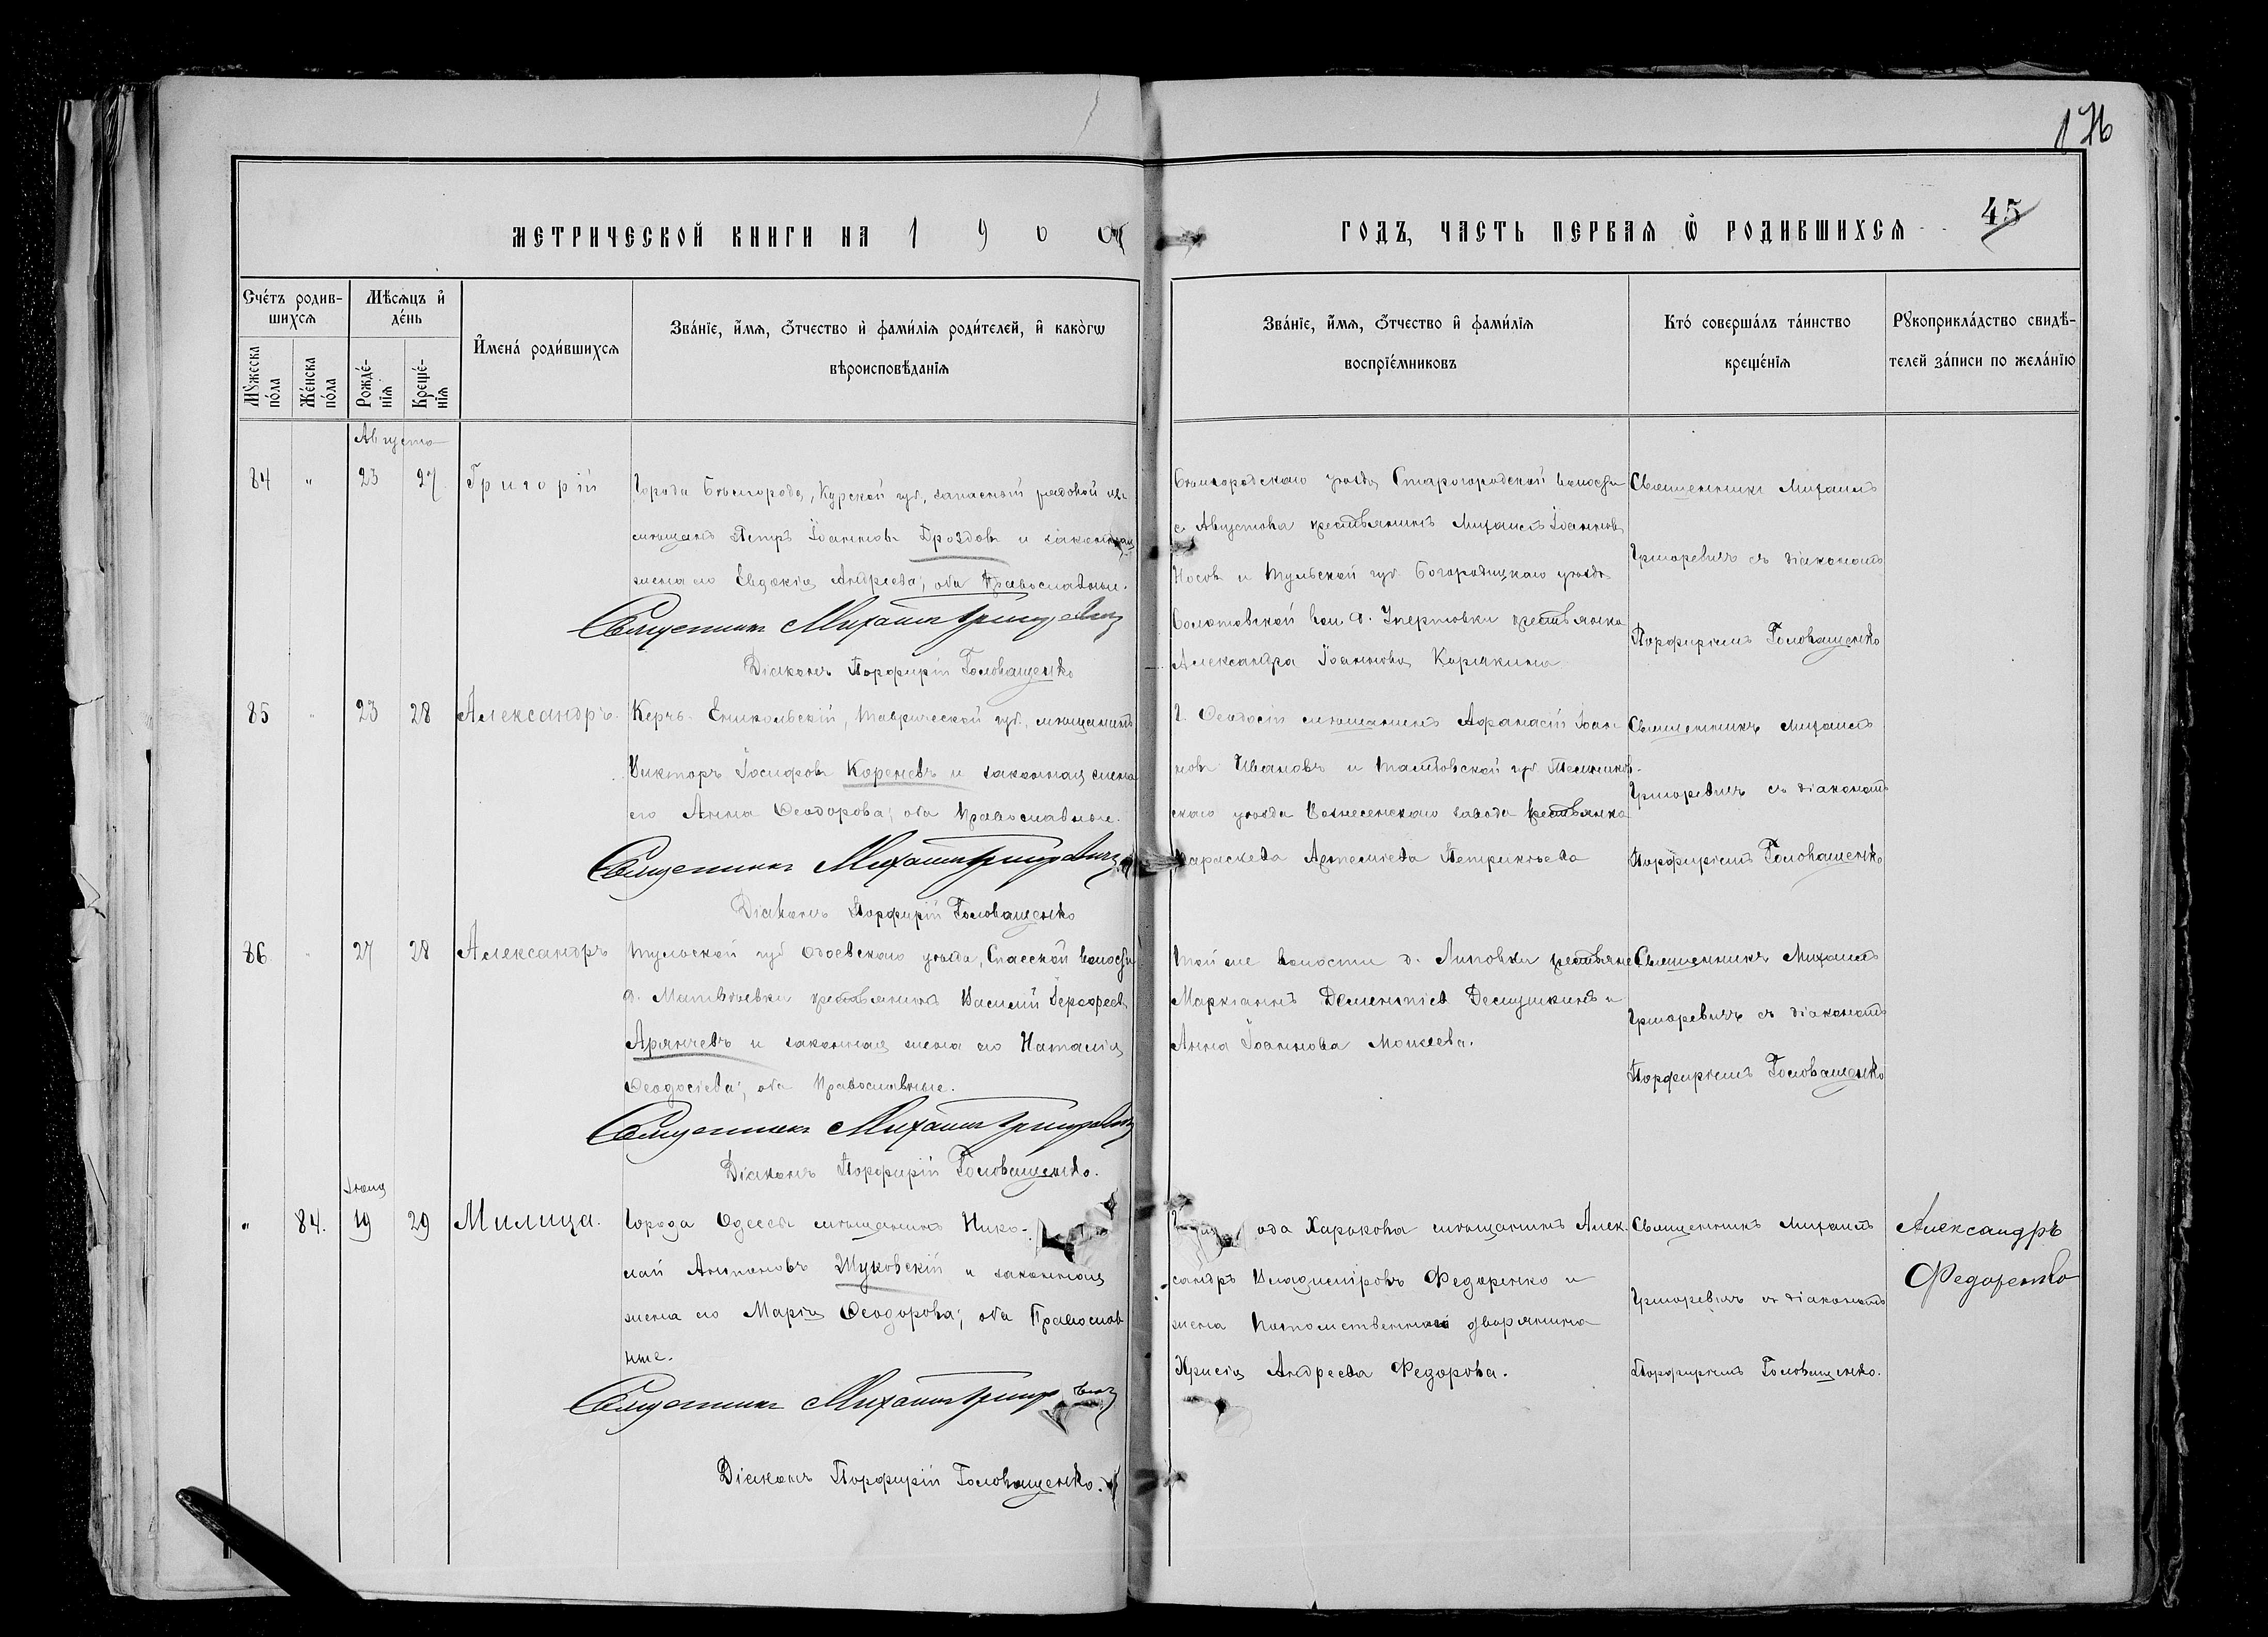 176
МЕТРИЧЕСКОЙ КНИГИ НА 1900
ГОДЪ, ЧАСТЬ ПЕРВАЯ Ѡ РОДИВШИХСЯ
45
Счетъ родив-
шихся
Мѣсяцъ и
день
Мужеска
пола
Женска
пола
Рожде-
нія
Креще-
нія
Имена родившихся
Званіе, имя, отчество и фамилія родителей, и какогѡ
вѣроисповѣданія
Званіе, имя, отчество и фамилія
воспріемниковъ
Кто совершалъ таинство
крещенія
Рукоприкладство свидѣ-
телей записи по желанію
Августа
84 " 23 27 Григорій
Города Бѣлгорода, Курской губ., запасный рядовой изъ
мѣщанъ Петръ Іоанновъ Дроздовъ и законная
жена его Евдокія Андреева, оба Православные.
Священникъ Михаилъ Григоревичъ
Діаконъ Порфирій Головащенко
Бѣлгородскаго уѣзда Старогородской волости
с. Августова крестьянинъ Михаилъ Іоанновъ
Носовъ и Тульской губ. Богородицкаго уѣзда
вол. д. крестьянка
Александра Іоаннова Карякина
Священникъ Михаилъ
Григоревичъ съ діакономъ
Порфиріемъ Головащенко
85 " 23 28 Александръ.
Керчь-Еникольскій, Таврической губ., мѣщанинъ
Викторъ Іосифовъ Кореневъ и законная жена
его Анна Ѳеодорова; оба Православные.
Священникъ Михаилъ Григоревичъ
Діаконъ Порфирій Головащенко
Г. Ѳеодосіи мѣщанинъ Афанасій Іоан-
новъ Ивановъ и Тамбовской губ. Темников-
скаго уѣзда Вознесенскаго завода крестьянка
Параскева Артемиева
Священникъ Михаилъ
Григоревичъ съ діакономъ
Порфиріемъ Головащенко
86. " 27 28 Александръ
Тульской губ. Одоевскаго уѣзда, Спасской волости
д. Матвѣевки крестьянинъ Василій
и законная жена его Наталія
Ѳеодосіева; оба Православные.
Священникъ Михаилъ Григоревичъ
Діаконъ Порфирій Головащенко.
Той же волости д. Липовки крестьяне
Маркіанъ Дементіев и
Анна Іоаннова Моисеева.
Священникъ Михаилъ
Григоревичъ съ діакономъ
Порфиріемъ Головащенко
" 84. 19 29 Милица.
Города Одессы мѣщанинъ Нико-
лай Антоновъ Жуковскій и законная
жена его Марія Ѳеодорова; оба Православ
ные.
Священникъ Михаилъ
Діаконъ Порфирій Головащенко.
ода Харькова мѣщанинъ Алек-
сандръ Владиміровъ Федоренко и
жена потомственнаго дворянина
Андреева Федорова.
Священникъ Михаилъ
Григоревичъ съ діакономъ
Порфиріемъ Головащенко.
Александръ
Федоренко